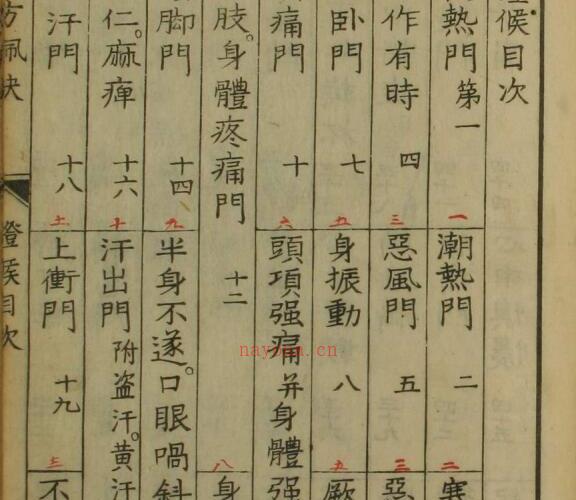 候目次
熱門 第一 一 潮熱門 二 二 寒
作有時 四 三 惡風門 五 三 惡
卧門 七 五 身振動 八 五 厥
痛門 十 六 頭項强痛 并身體强
肢。身體疼痛門 十二 八 身
脚門 十四 九 半身不遂。口眼喎斜
仁。麻痺 十六 十 汗出門 附盗汗。黄汗
汗門 十八 上衝門 十九 不
證候目次